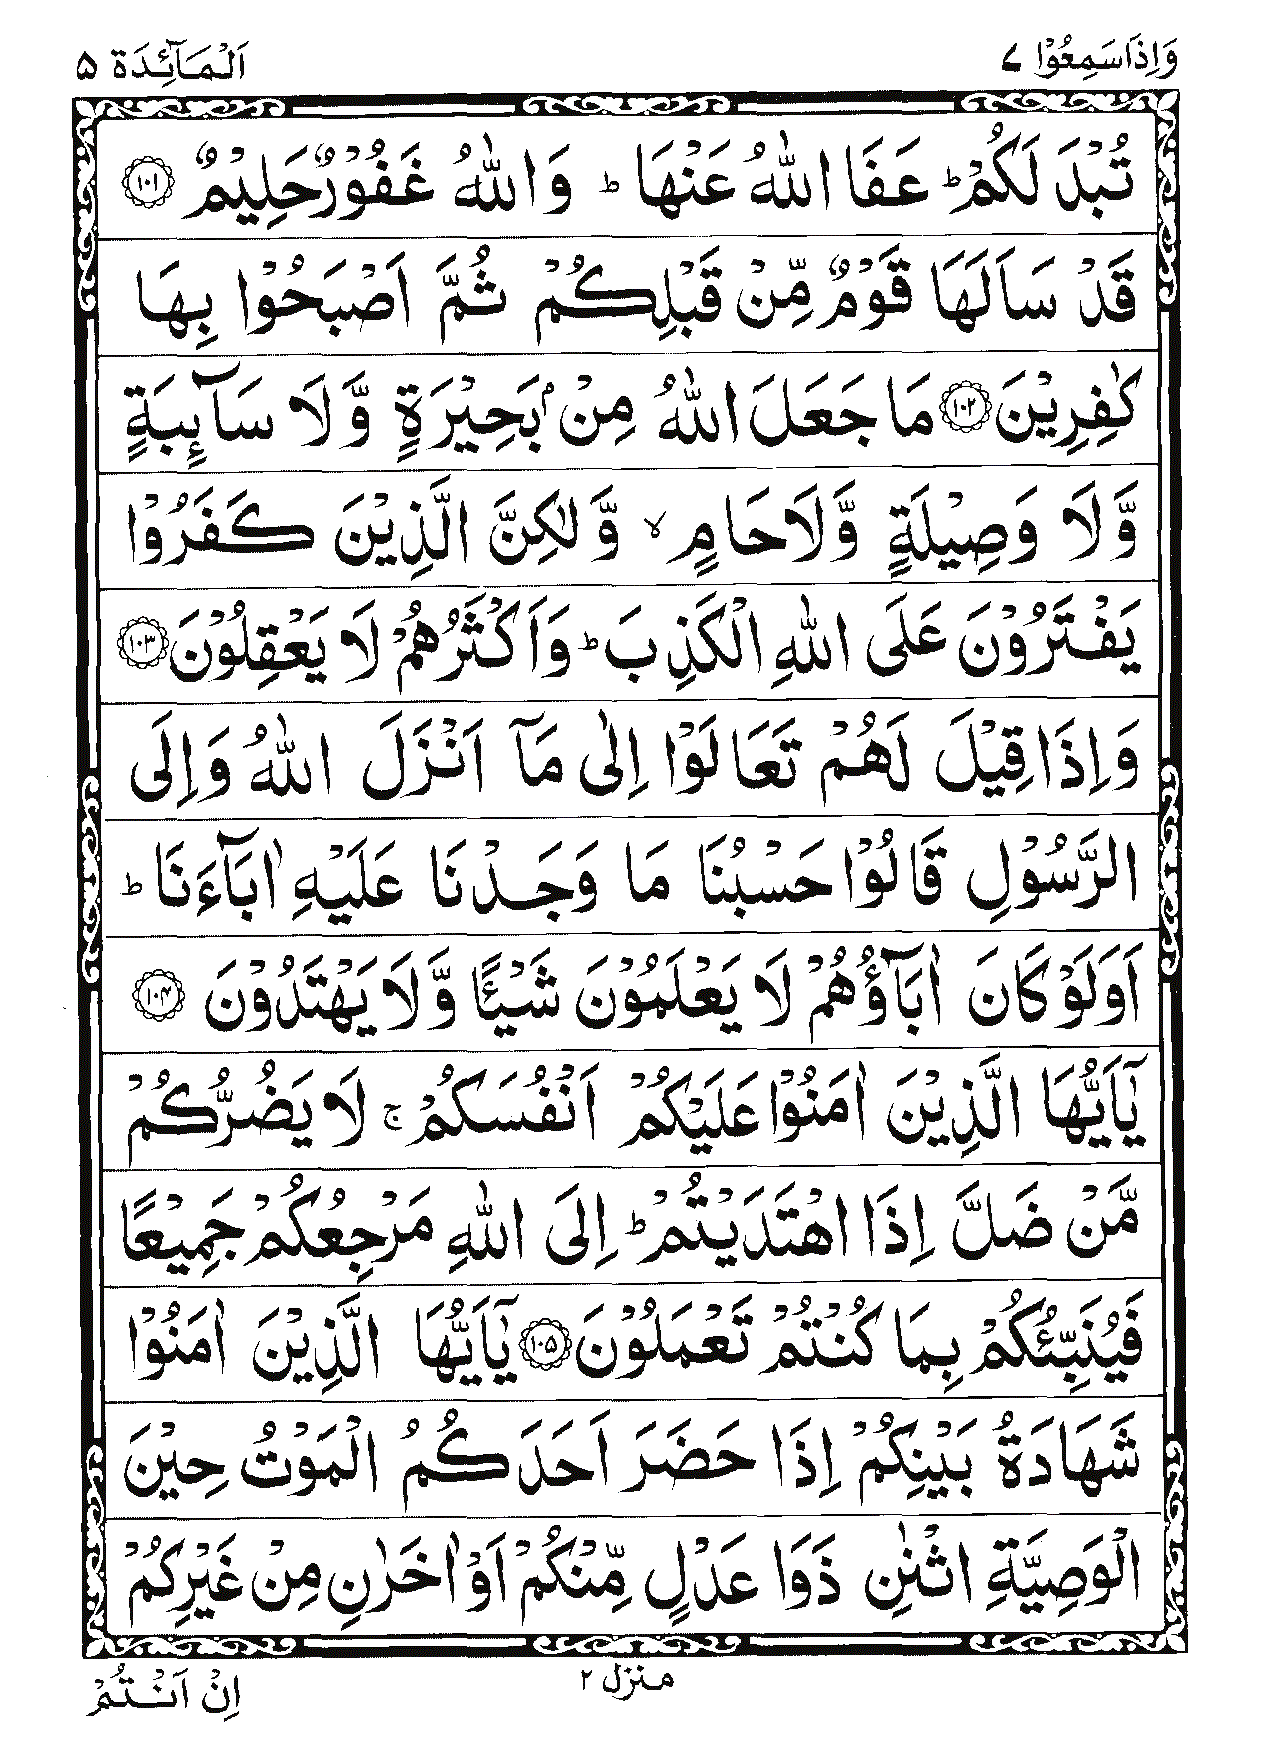 وَاِذَاسَمِعُوْا ٧
اَلْمَآئِدَة ۵
تُبْدَ لَكُمْ ؕ عَفَا اللّٰهُ عَنْهَا ؕ وَاللّٰهُ غَفُوْرٌ حَلِيْمٌ ۝۱۰۱
قَدْ سَاَلَهَا قَوْمٌ مِّنْ قَبْلِكُمْ ثُمَّ اَصْبَحُوْا بِهَا
كٰفِرِيْنَ ۝۱۰۲ مَا جَعَلَ اللّٰهُ مِنْۢ بَحِيْرَةٍ وَّلَا سَآئِبَةٍ
وَّلَا وَصِيْلَةٍ وَّلَا حَامٍ ۙ وَّلٰكِنَّ الَّذِيْنَ كَفَرُوْا
يَفْتَرُوْنَ عَلَى اللّٰهِ الْكَذِبَ ؕ وَاَكْثَرُهُمْ لَا يَعْقِلُوْنَ ۝۱۰۳
وَاِذَا قِيْلَ لَهُمْ تَعَالَوْا اِلٰى مَآ اَنْزَلَ اللّٰهُ وَاِلَى
الرَّسُوْلِ قَالُوْا حَسْبُنَا مَا وَجَدْنَا عَلَيْهِ اٰبَآءَنَا ؕ
اَوَلَوْ كَانَ اٰبَآؤُهُمْ لَا يَعْلَمُوْنَ شَيْئًا وَّلَا يَهْتَدُوْنَ ۝۱۰۴
يٰۤاَيُّهَا الَّذِيْنَ اٰمَنُوْا عَلَيْكُمْ اَنْفُسَكُمْ ۚ لَا يَضُرُّكُمْ
مَّنْ ضَلَّ اِذَا اهْتَدَيْتُمْ ؕ اِلَى اللّٰهِ مَرْجِعُكُمْ جَمِيْعًا
فَيُنَبِّئُكُمْ بِمَا كُنْتُمْ تَعْمَلُوْنَ ۝۱۰۵ يٰۤاَيُّهَا الَّذِيْنَ اٰمَنُوْا
شَهَادَةُ بَيْنِكُمْ اِذَا حَضَرَ اَحَدَكُمُ الْمَوْتُ حِيْنَ
الْوَصِيَّةِ اثْنٰنِ ذَوَا عَدْلٍ مِّنْكُمْ اَوْ اٰخَرٰنِ مِنْ غَيْرِكُمْ
منزل ۲
اِنْ اَنْتُمْ